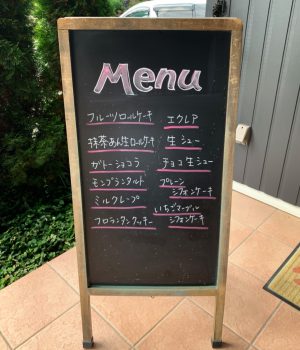 Menu
フルーツロールケーキ
抹茶あん生ロールケーキ
ガトーショコラ
モンブランタルト
ミルクレープ
フロランタンクッキー
エクレア
生シュー
チョコ生シュー
プレーン
シフォンケーキ
いちごマーブル
シフォンケーキ